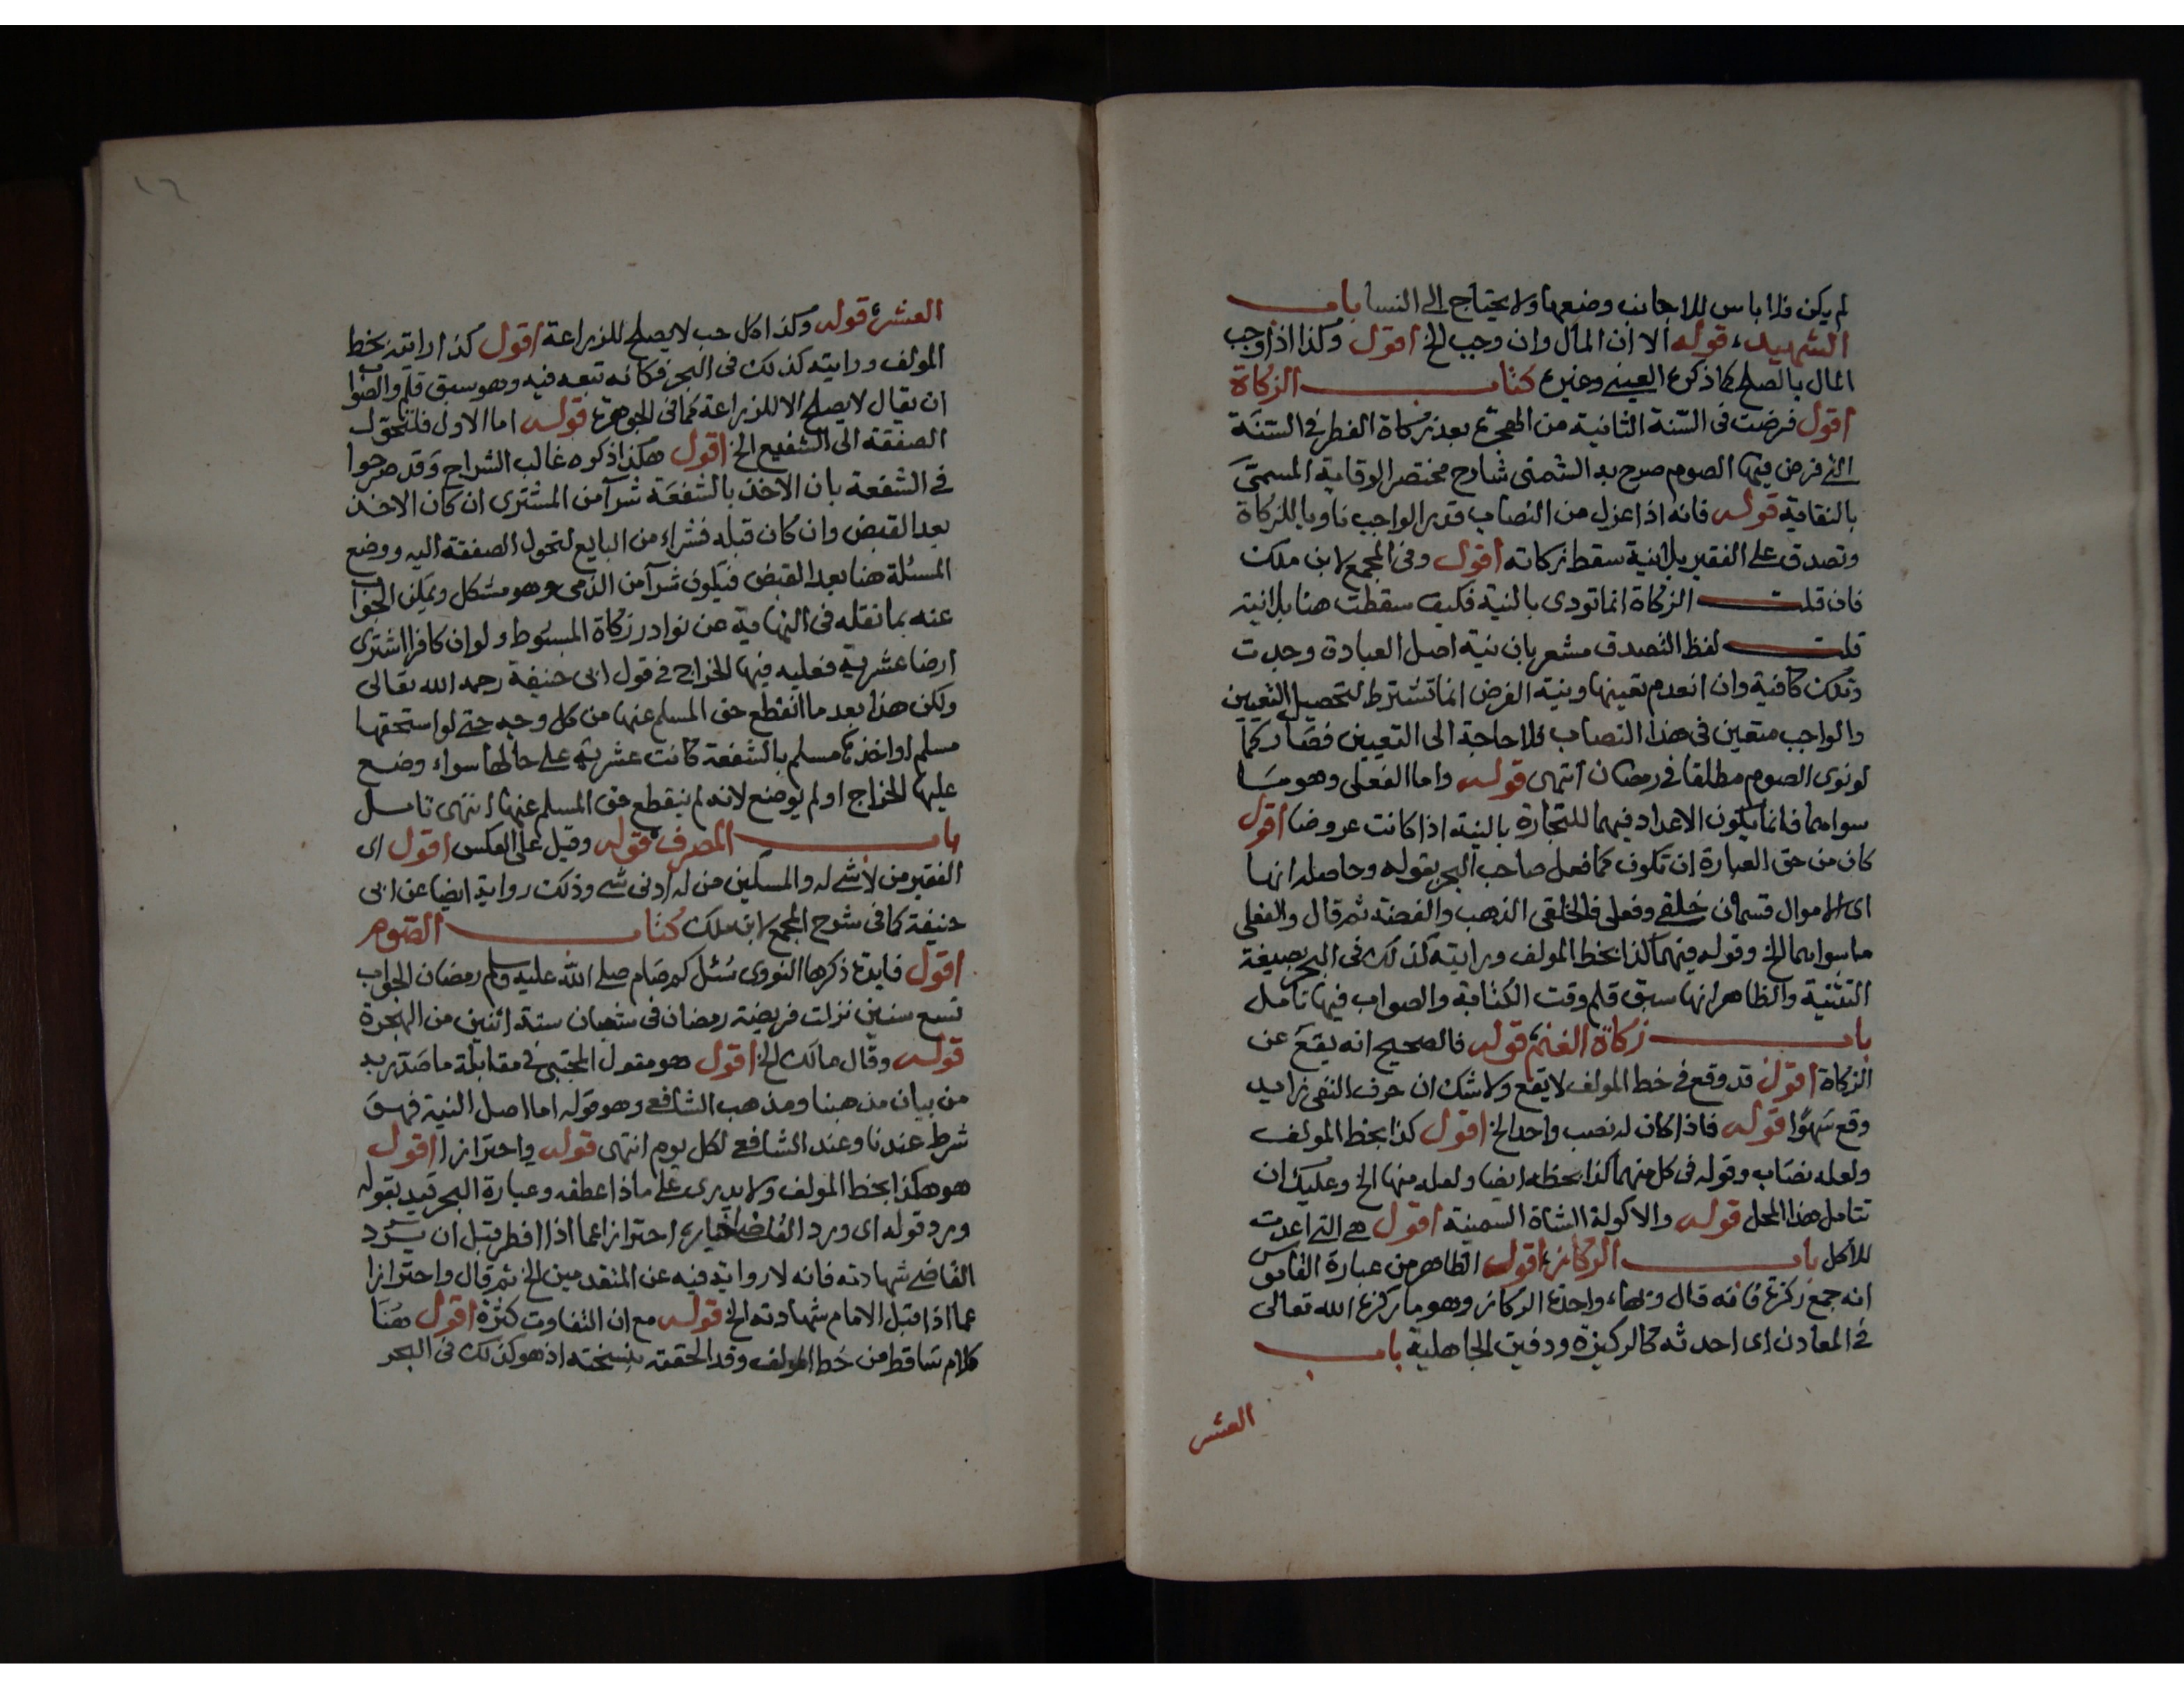 لم يكن فلا باس للاجانب وضعها ولا يحتاج الى النسا باب
الشهيد، قوله الا ان المال وان وجب الخ اقول وكذا اذا وجب
المال بالصلح كما ذكره العيني وغيره كتاب الزكاة
اقول فرضت فى السنة الثانية من الهجرة بعد زكاة الفطر فى السنة
التى فرض فيها الصوم صرح به الشمنى شارح مختصر الوقاية المسمى
بالنقاية قوله فانه اذا عزل من النصاب قدر الواجب ناويا للزكاة
وتصدق على الفقير بلا نية سقط زكاته اقول وفى المجمع لابن ملك
فان قلت الزكاة انما تودى بالنية فكيف سقطت هنا بلا نية
قلت لفظ التصدق مشعر بان نية اصل العبادة وجدت
وتلك كافية وان انعدم تعينها ونية الفرض انما تشترط لتحصيل التعيين
والواجب متعين فى هذا النصاب فلا حاجة الى التعيين فصار كما
لو نوى الصوم مطلقا فى رمضان انتهى قوله واما الفعلى وهو ما
سواهما فانما يكون الاعداد فيهما للتجارة بالنية اذا كانت عروضا اقول
كان من حق العبارة ان تكون كما فعل صاحب البحر بقوله وحاصله انها
اى الاموال قسمان خلقى وفعلى فالخلقى الذهب والفضة ثم قال والفعلى
ما سواهما الخ وقوله فيهما كذا بخط المولف ورايته كذلك فى البحر بصيغة
التثنية والظاهر انها سبق قلم وقت الكتابة والصواب فيها تامل
باب زكاة الغنم قوله فالصحيح انه يقع عن
الزكاة اقول قد وقع فى خط المولف لا يقع ولا شك ان حرف النفى زايد
وقع سهوا قوله فاذا كان له نصب واحد الخ اقول كذا بخط المولف
ولعله نصاب وقوله فى كل منهما كذا بخطه ايضا ولعله منها الخ وعليك ان
تتامل هذا المحل قوله والاكولة الشاة السمينة اقول هى التى اعدت
للاكل باب الركاز، اقول الظاهر من عبارة القاموس
انه جمع ركزة فانه قال وبهاء واحدة الركاز وهو ما ركزه الله تعالى
فى المعادن اى احدثه كالركيزة ودفين الجاهلية باب
العشر
١٦
العشر، قوله وكذا كل حب لا يصلح للزراعة اقول كذا رايته بخط
المولف ورايته كذلك فى البحر فكانه تبعه فيه وهو سبق قلم والصواب
ان يقال لا يصلح الا للزراعة كما فى الجوهرة قوله اما الاول فلتحول
الصفقة الى الشفيع الخ اقول هكذا ذكره غالب الشراح وقد صرحوا
فى الشفعة بان الاخذ بالشفعة شرآ من المشترى ان كان الاخذ
بعد القبض وان كان قبله فشراء من البايع لتحول الصفقة اليه ووضع
المسئلة هنا بعد القبض فيكون شرآ من الذمى وهو مشكل ويمكن الجواب
عنه بما نقله فى النهاية عن نوادر زكاة المبسوط ولو ان كافرا اشترى
ارضا عشرية فعليه فيها الخراج فى قول ابى حنيفة رحمه الله تعالى
ولكن هذا بعد ما انقطع حق المسلم عنها من كل وجه حتى لو استحقها
مسلم او اخذها مسلم بالشفعة كانت عشرية على حالها سواء وضع
عليها الخراج او لم يوضع لانه لم ينقطع حق المسلم عنها انتهى تامل
باب المصرف قوله وقيل على العكس اقول اى
الفقير من لا شى له والمسكين من له ادنى شى وذلك رواية ايضا عن ابى
حنيفة كما فى شرح المجمع لابن ملك كتاب الصوم
اقول فايدة ذكرها النووى سئل كم صام صلى الله عليه وسلم رمضان الجواب
تسع سنين نزلت فريضة رمضان فى شعبان سنة اثنين من الهجرة
قوله وقال مالك الخ اقول هو مقول المجتبى فى مقابلة ما صدر به
من بيان مذهبنا ومذهب الشافعى وهو قوله اما اصل النية فهو
شرط عندنا وعند الشافعى لكل يوم انتهى قوله واحترازا اقول
هو هكذا بخط المولف ولا يدرى على ماذا عطفه وعبارة البحر قيد بقوله
ورد قوله اى ورد القاضى اخباره احترازا عما اذا افطر قبل ان يرد
القاضى شهادته فانه لا رواية فيه عن المتقدمين الخ ثم قال واحترازا
عما اذا قبل الامام شهادته الخ قوله مع ان التفاوت كثرة اقول هنا
كلام ساقط من خط المولف وقد الحقته بنسخته اذ هو كذلك فى البحر